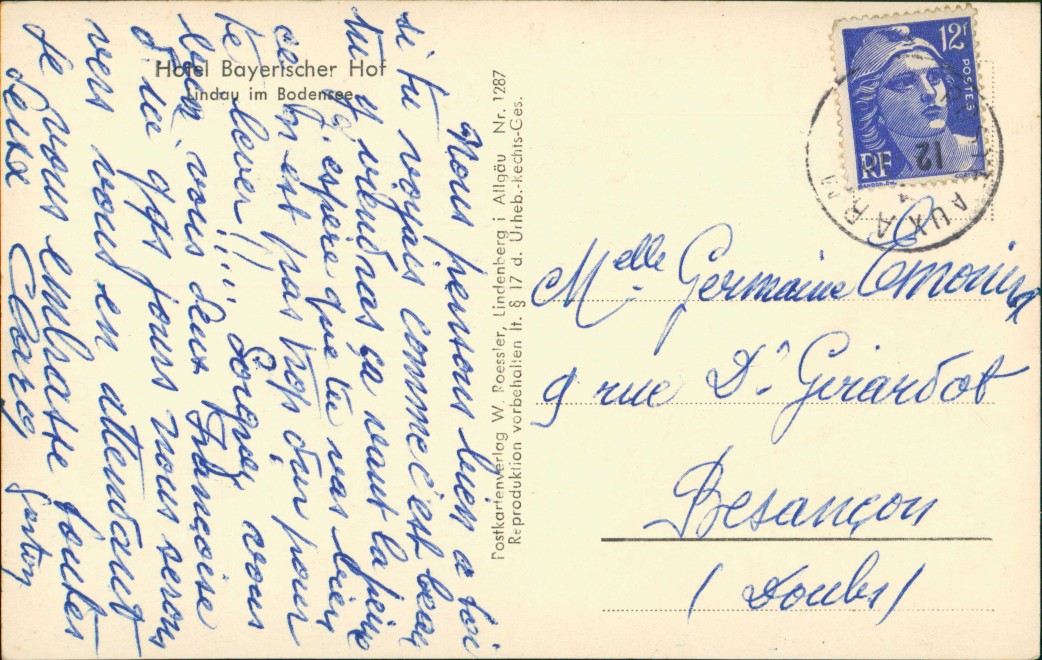 Hotel Bayerischer Hof
Lindau im Bodensee
Nous pensons bien à toi
si tu voyais comme c'est beau
tu y viendras ça vaut la peine
j'espère que tu vas bien
ce n'est pas trop dur pour
te lever !!! Soignez vous
bien vous deux Françoise
d'ici qqs jours nous serons
vers vous en attendant
je vous embrasse toutes
deux
Postkartenverlag W. Roessler, Lindenberg i Allgäu Nr. 1287
Reproduktion vorbehalten lt. § 17 d. Urheb.-Rechts-Ges.
12f
POSTES
RF
12
AUX ARM
Melle Germaine
9 rue Dr Girardot
Besançon
(Doubs)